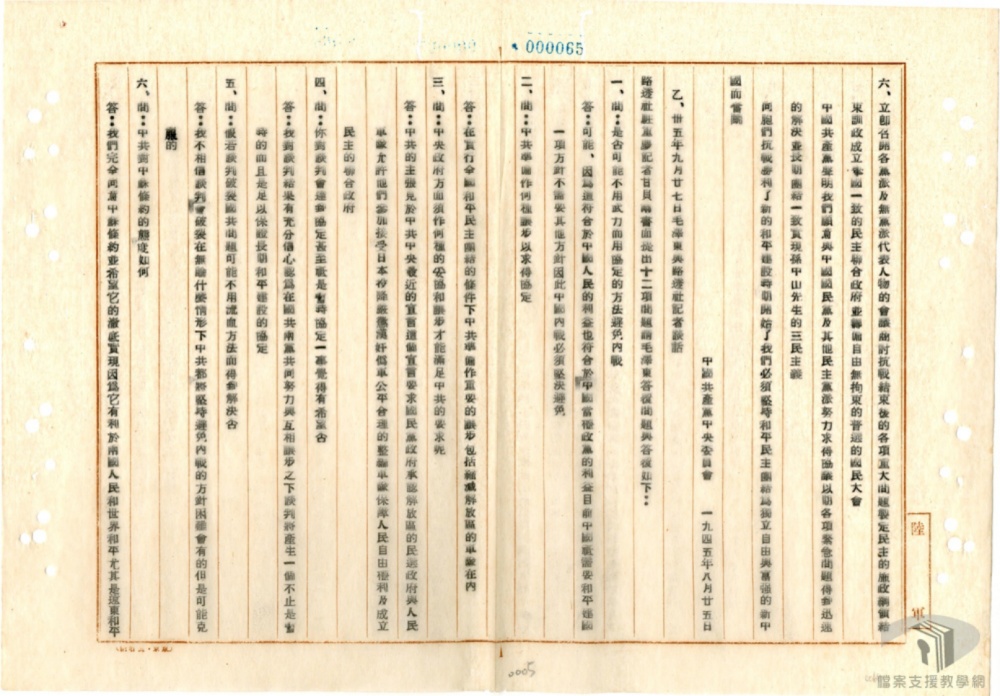 000065
六、立即召開各黨派及無黨派代表人物的會議商討抗戰結束後的各項重大問題製定民主的施政綱領結
束訓政成立舉國一致的民主聯合政府並籌備自由無拘束的普選的國民大會
中國共產黨聲明我們願意與中國國民黨及其他民主黨派努力求得協議以期各項緊急問題得到迅速
的解決並長期團結一致實現孫中山先生的三民主義
同胞們抗戰勝利了新的和平建設時期開始了我們必須堅持和平民主團結為獨立自由與富強的新中
國而奮鬥
中國共產黨中央委員會 一九四五年八月廿五日
乙、卅五年九月廿七日毛澤東與路透社記者談話
路透社駐重慶記者甘貝爾書面提出十二項問題請毛澤東答復問題與答復如下：
一、問：是否可能不用武力而用協定的方法避免內戰
答：可能、因為這符合於中國人民的利益也符合於中國當權政黨的利益目前中國祇需要和平建國
一項方針不需要其他方針因此中國內戰必須堅決避免
二、問：中共準備作何種讓步以求得協定
答：在實行全國和平民主團結的條件下中共準備作重要的讓步包括縮減解放區的軍隊在內
三、問：中央政府方面須作何種的妥協和讓步才能滿足中共的要求呢
答：中共的主張見於中共中央最近的宣言這個宣言要求國民黨政府承認解放區的民選政府與人民
軍隊允許他們參加接受日本投降嚴懲漢奸偽軍公平合理的整編軍隊保障人民自由權利及成立
民主的聯合政府
四、問：你對談判會達到協定甚至祇是暫時協定一事覺得有希望否
答：我對談判結果有充分信心認為在國共兩黨共同努力與互相讓步之下談判將產生一個不止是暫
時的而且是足以保證長期和平建設的協定
五、問：假若談判破裂國共問題可能不用流血方法而得到解決否
答：我不相信談判會破裂在無論什麼情形下中共都將堅持避免內戰的方針困難會有的但是可能克
服的
六、問：中共對中蘇條約的態度如何
答：我們完全同意中蘇條約並希望它的徹底實現因為它有利於兩國人民和世界和平尤其是遠東和平
陸 軍
0005
檔案支援教學網